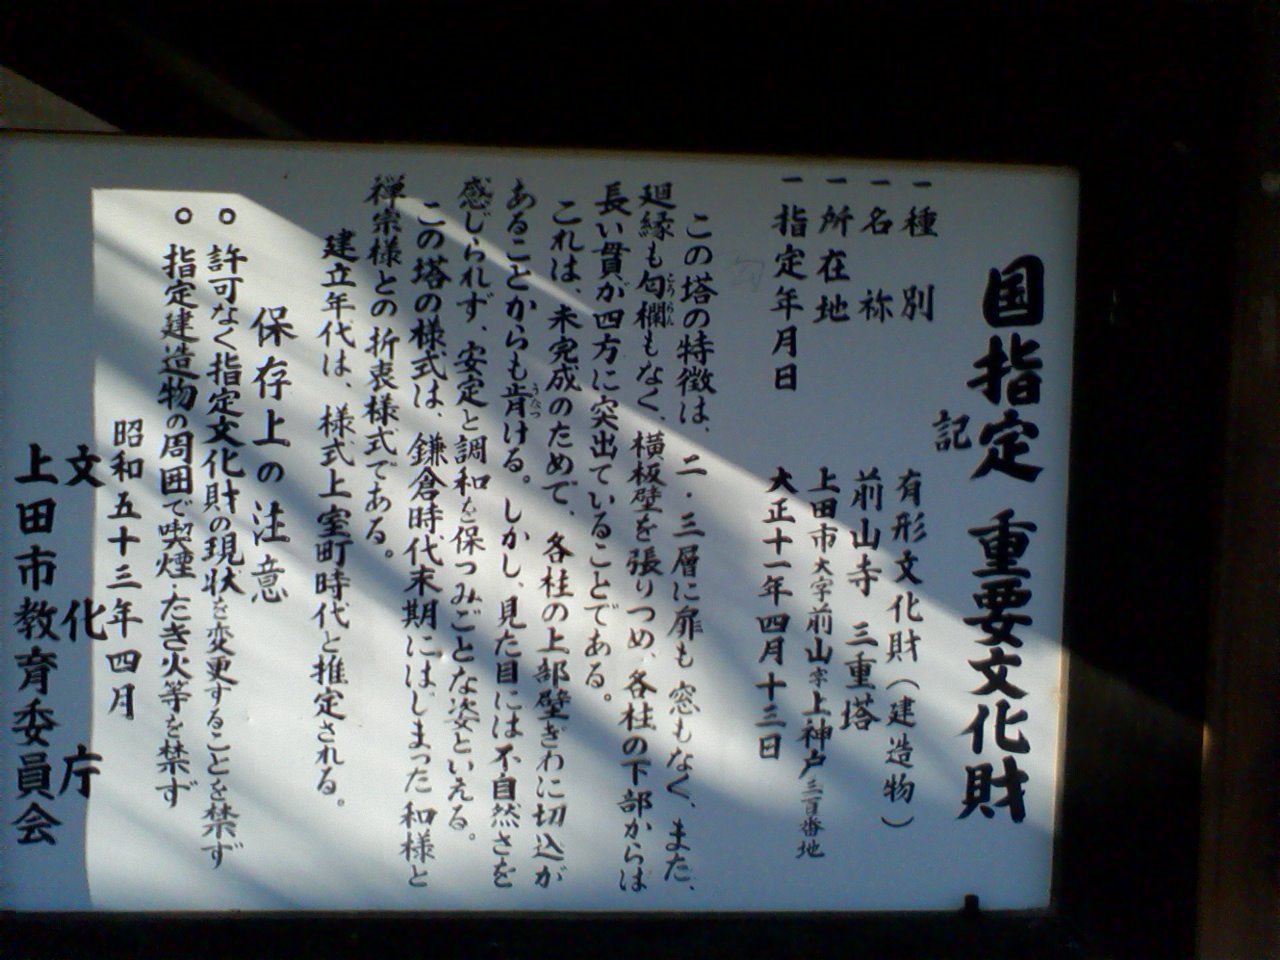 国指定 重要文化財
記
一 種別 有形文化財（建造物）
一 名称 前山寺 三重塔
一 所在地 上田市大字前山字上神戸三百番地
一 指定年月日 大正十一年四月十三日
この塔の特徴は、二・三層に扉も窓もなく、また、
廻縁も勾欄もなく、横板壁を張りつめ、各柱の下部からは
長い貫が四方に突出ていることである。
これは、未完成のためで、各柱の上部壁ぎわに切込が
あることからも肯ける。しかし、見た目には不自然さを
感じられず、安定と調和を保つみごとな姿といえる。
この塔の様式は、鎌倉時代末期にはじまった和様と
禅宗様との折衷様式である。
建立年代は、様式上室町時代と推定される。
保存上の注意
○ 許可なく指定文化財の現状を変更することを禁ず
○ 指定建造物の周囲で喫煙、たき火等を禁ず
昭和五十三年四月
文化庁
上田市教育委員会